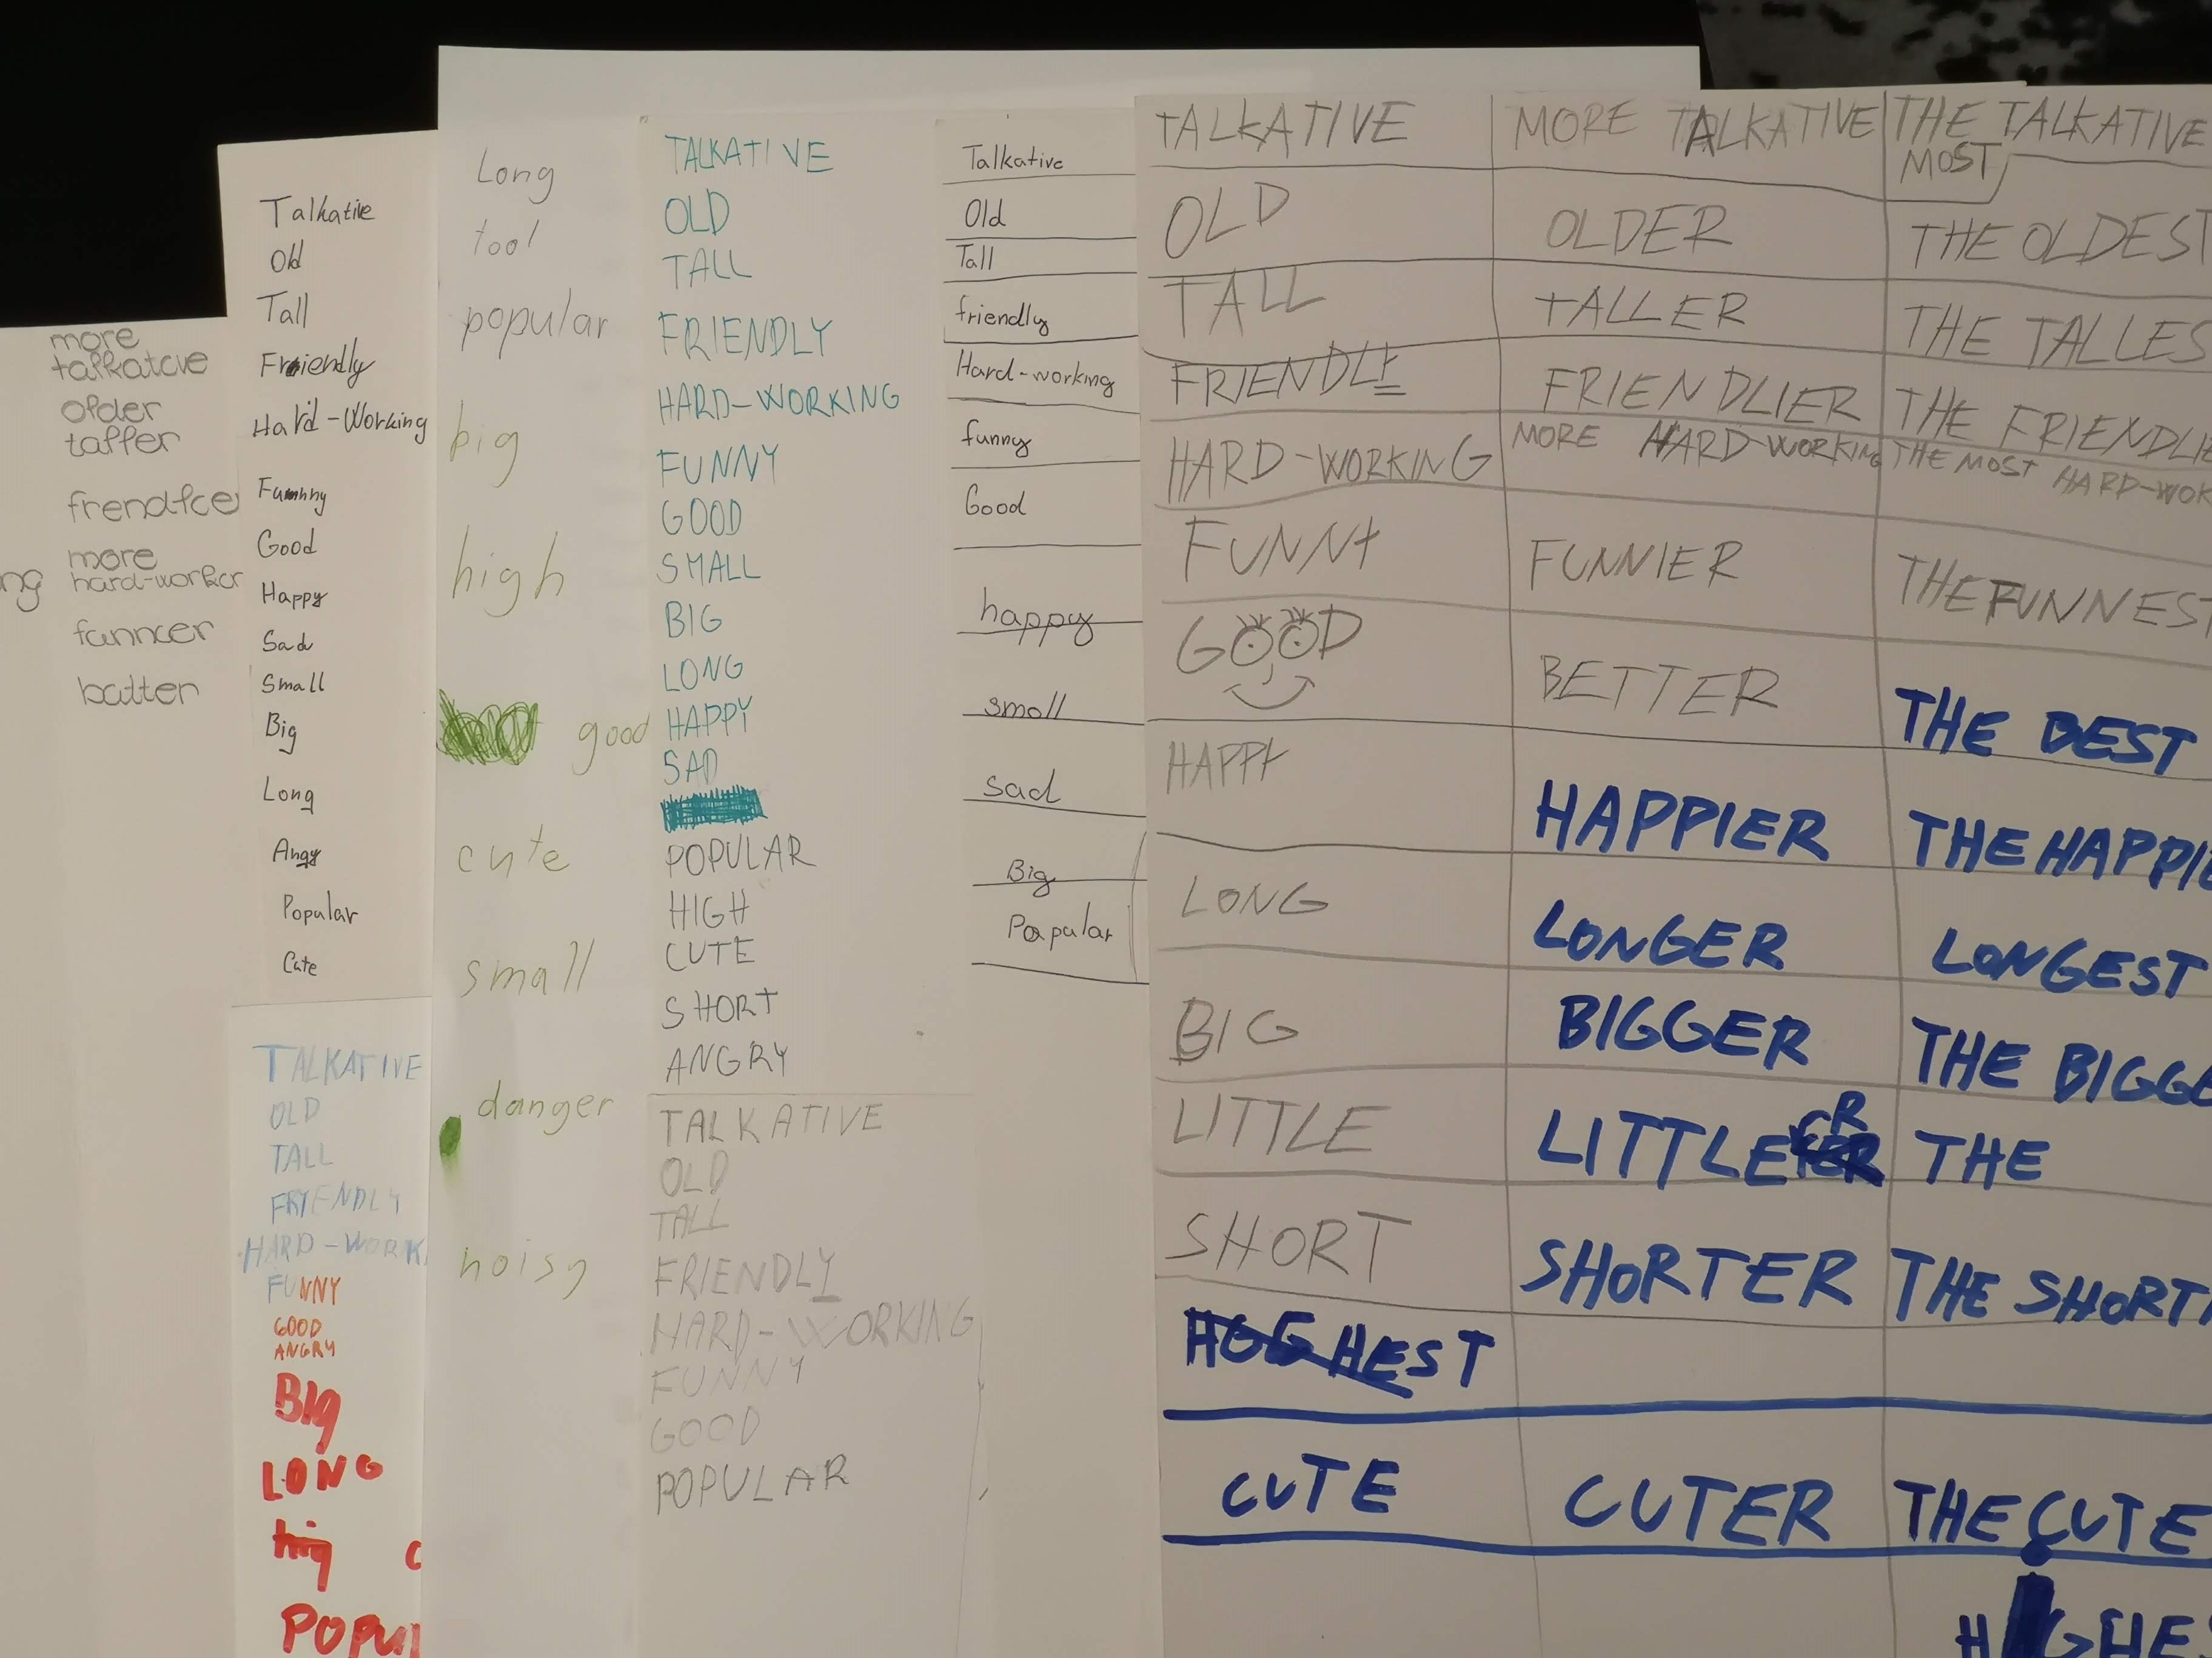 more
talkatcve
older
taller
frendlce
ng
more
hard-worker
funncer
batter
Talkative
Old
Tall
Friendly
Hard-Working
Funnny
Good
Happy
Sad
Small
Big
Long
Angy
Popular
Cute
TALKATIVE
OLD
TALL
FRIENDLY
HARD-WORK
FUNNY
GOOD
ANGRY
BIg
LONG
POPUL
Long
tool
popular
big
high
good
cute
small
danger
noisy
TALKATIVE
OLD
TALL
FRIENDLY
HARD-WORKING
FUNNY
GOOD
SMALL
BIG
LONG
HAPPY
SAD
POPULAR
HIGH
CUTE
SHORT
ANGRY
TALKATIVE
OLD
TALL
FRIENDLY
HARD-WORKING
FUNNY
GOOD
POPULAR
Talkative
Old
Tall
friendly
Hard-working
funny
Good
happy
small
sad
Big
Papular
TALKATIVE MORE TALKATIVE THE TALKATIVE
MOST
OLD OLDER THE OLDEST
TALL TALLER THE TALLES
FRIENDLY FRIENDLIER THE FRIENDLIE
HARD-WORKING MORE HARD-WORKING THE MOST HARD-WOK
FUNNY FUNNIER THE FUNNEST
GOOD BETTER THE BEST
HAPPY HAPPIER THE HAPPIE
LONG LONGER LONGEST
BIG BIGGER THE BIGGE
LITTLE LITTLE THE
SHORT SHORTER THE SHORT
CUTE CUTER THE CUTE